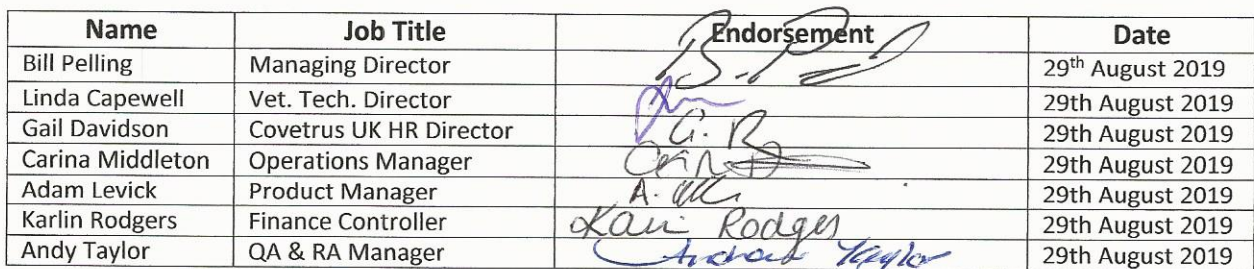 Name Job Title Endorsement Date
Bill Pelling Managing Director B. P 29th August 2019
Linda Capewell Vet. Tech. Director 29th August 2019
Gail Davidson Covetrus UK HR Director G. 29th August 2019
Carina Middleton Operations Manager 29th August 2019
Adam Levick Product Manager A. 29th August 2019
Karlin Rodgers Finance Controller Rodgers 29th August 2019
Andy Taylor QA & RA Manager Andrew Taylor 29th August 2019